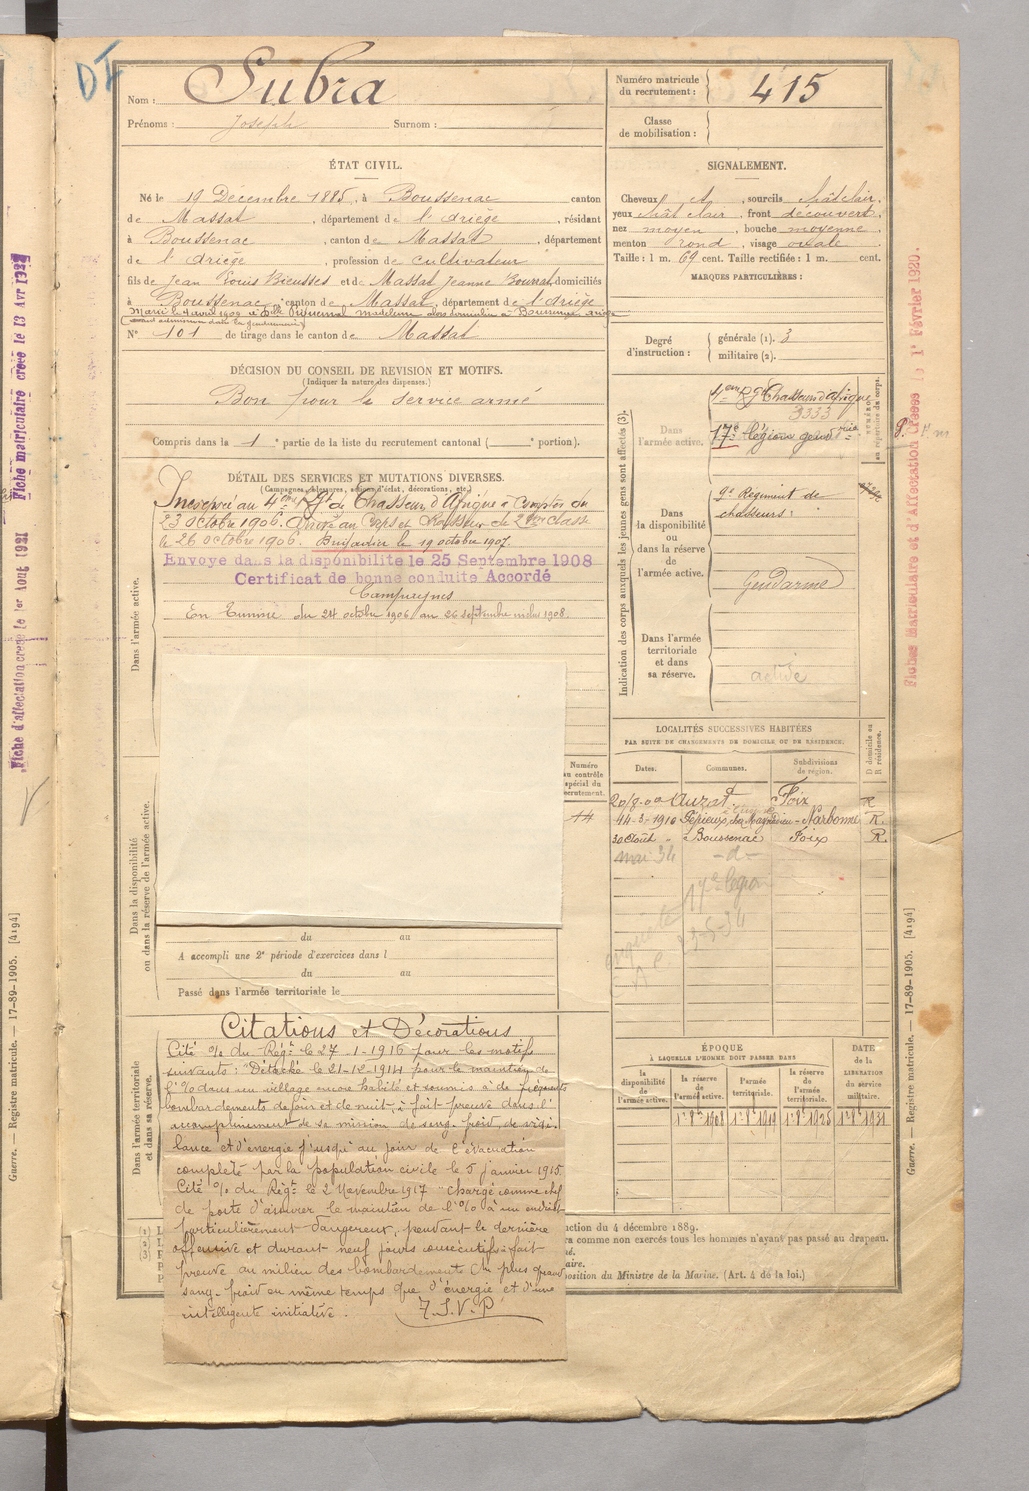 DI
Nom : Subra
Prénoms : Joseph Surnom :
Numéro matricule du recrutement : 415
Classe de mobilisation :
ÉTAT CIVIL.
Né le 19 Décembre 1885, à Boussenac canton
de Massat, département de l'Ariège, résidant
à Boussenac, canton de Massat, département
de l'Ariège, profession de Cultivateur
fils de Jean Louis Bieusses et de Massat Jeanne domiciliés
à Boussenac, canton de Massat, département de l'Ariège
Marié le 4 avril 1909 à Delle madeleine domiciliée à Boussenac Ariège
N° 101 de tirage dans le canton de Massat
SIGNALEMENT.
Cheveux et, sourcils chât clair,
yeux chât clair, front découvert,
nez moyen, bouche moyenne,
menton rond, visage ovale
Taille : 1 m. 69 cent. Taille rectifiée : 1 m. cent.
MARQUES PARTICULIÈRES :
Degré d'instruction : générale (1). 3
militaire (2).
DÉCISION DU CONSEIL DE REVISION ET MOTIFS.
(Indiquer la nature des dispenses.)
Bon pour le service armé
Compris dans la 1e partie de la liste du recrutement cantonal ( e portion).
DÉTAIL DES SERVICES ET MUTATIONS DIVERSES.
(Campagnes, blessures, actions d'éclat, décorations, etc.)
Dans l'armée active.
Incorporé au 4eme Rgt de Chasseurs d'Afrique à Compter du
23 octobre 1906. Arrivé au Corps et Chasseur de 2eme classe
le 26 octobre 1906. Brigadier le 19 octobre 1907.
Envoyé dans la disponibilité le 25 Septembre 1908
Certificat de bonne conduite Accordé
Campagnes
En Tunisie du 24 octobre 1906 au 26 septembre inclus 1908.
Indication des corps auxquels les jeunes gens sont affectés (3).
NUMÉROS au répertoire du corps.
Dans l'armée active.
4em Rgt Chasseurs d'Afrique
3333
17e Légion gendrie
Dans la disponibilité ou dans la réserve de l'armée active.
9e Régiment de
chasseurs :
Gendarme
Dans l'armée territoriale et dans sa réserve.
active
LOCALITÉS SUCCESSIVES HABITÉES
PAR SUITE DE CHANGEMENTS DE DOMICILE OU DE RÉSIDENCE.
Dates. Communes. Subdivisions de région. D domicile ou R résidence.
Auzat Foix R
14-3-1910 Narbonne R.
30 Août " Boussenac Foix R
mai 34 -d-
17e légion
23-5-34
Numéro au contrôle spécial du recrutement.
Dans la disponibilité ou dans la réserve de l'armée active.
du au
A accompli une 2e période d'exercices dans l
du au
Passé dans l'armée territoriale le
Dans l'armée territoriale et dans sa réserve.
Citations et Décorations
Cité % du Régt le 27-1-1916 pour les motifs
suivants : "Détaché le 21-12-1914 pour le maintien de
l'% dans un village encore habité et soumis à de fréquents
bombardements de jour et de nuit, à fait preuve dans l'
accomplissement de sa mission de sang-froid, de vigi-
lance et d'énergie jusqu'au jour de l'évacuation
complète par la population civile le 5 janvier 1915
Cité % du Régt le 2 Novembre 1917 "Chargé comme chef
de poste d'assurer le maintien de l'% à un endroit
particulièrement dangereux, pendant la dernière
offensive et durant neuf jours consécutifs à fait
preuve au milieu des bombardements du plus grand
sang-froid en même temps que d'énergie et d'une
intelligente initiative.
T.S.V.P
ÉPOQUE
À LAQUELLE L'HOMME DOIT PASSER DANS
la disponibilité de l'armée active. la réserve de l'armée active. l'armée territoriale. la réserve de l'armée territoriale. DATE de la LIBÉRATION du service militaire.
1er 8bre 1908 1er 8bre 1919 1er 8bre 1925 1er 8bre 1931
ction du 4 décembre 1889.
ra comme non exercés tous les hommes n'ayant pas passé au drapeau.
né.
aire.
position du Ministre de la Marine. (Art. 4 de la loi.)
Guerre. — Registre matricule. — 17-89-1905. [4194]
Guerre. — Registre matricule. — 17-89-1905. [4194]
Fiches Matriculaire et d'Affectation Créées le 1er Février 1920.
Fiche d'affectation créée le 1er Août 1921
Fiche matriculaire créée le 13 Avr